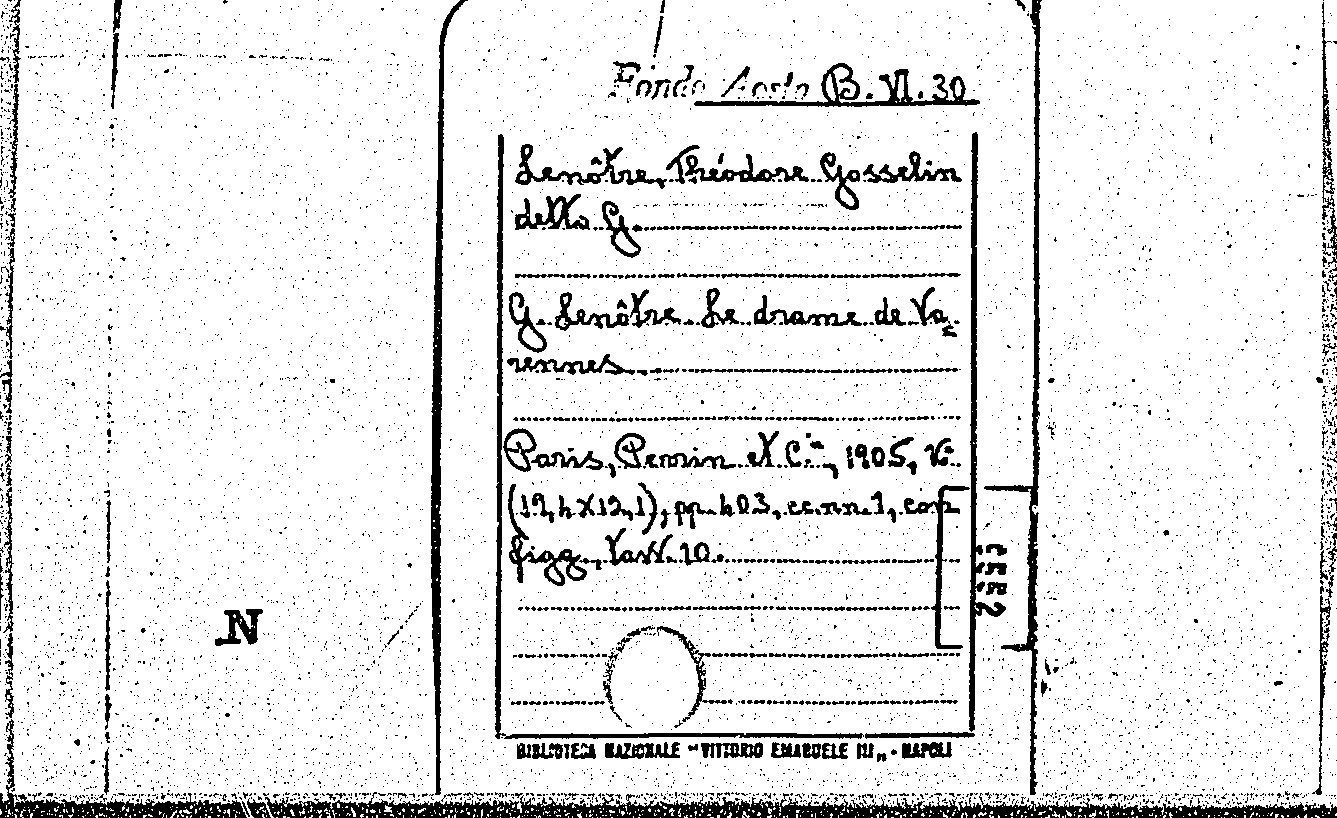 Fondo Aosta B. VI. 30
Lenôtre, Théodore Gosselin
detto G.
G. Lenôtre. Le drame de Va=
rennes.
Paris, Perrin et C.ie, 1905, 16°
(19,4 X 12,1), pp. 403, cc.nn. 1, con
figg., tavv. 10.
N
BIBLIOTECA NAZIONALE "VITTORIO EMANUELE III„ - NAPOLI